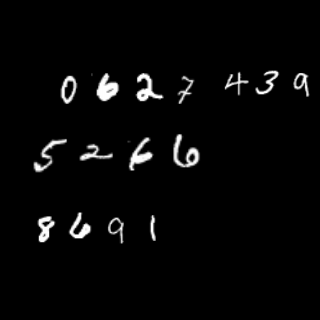 0627 439
5266
8691